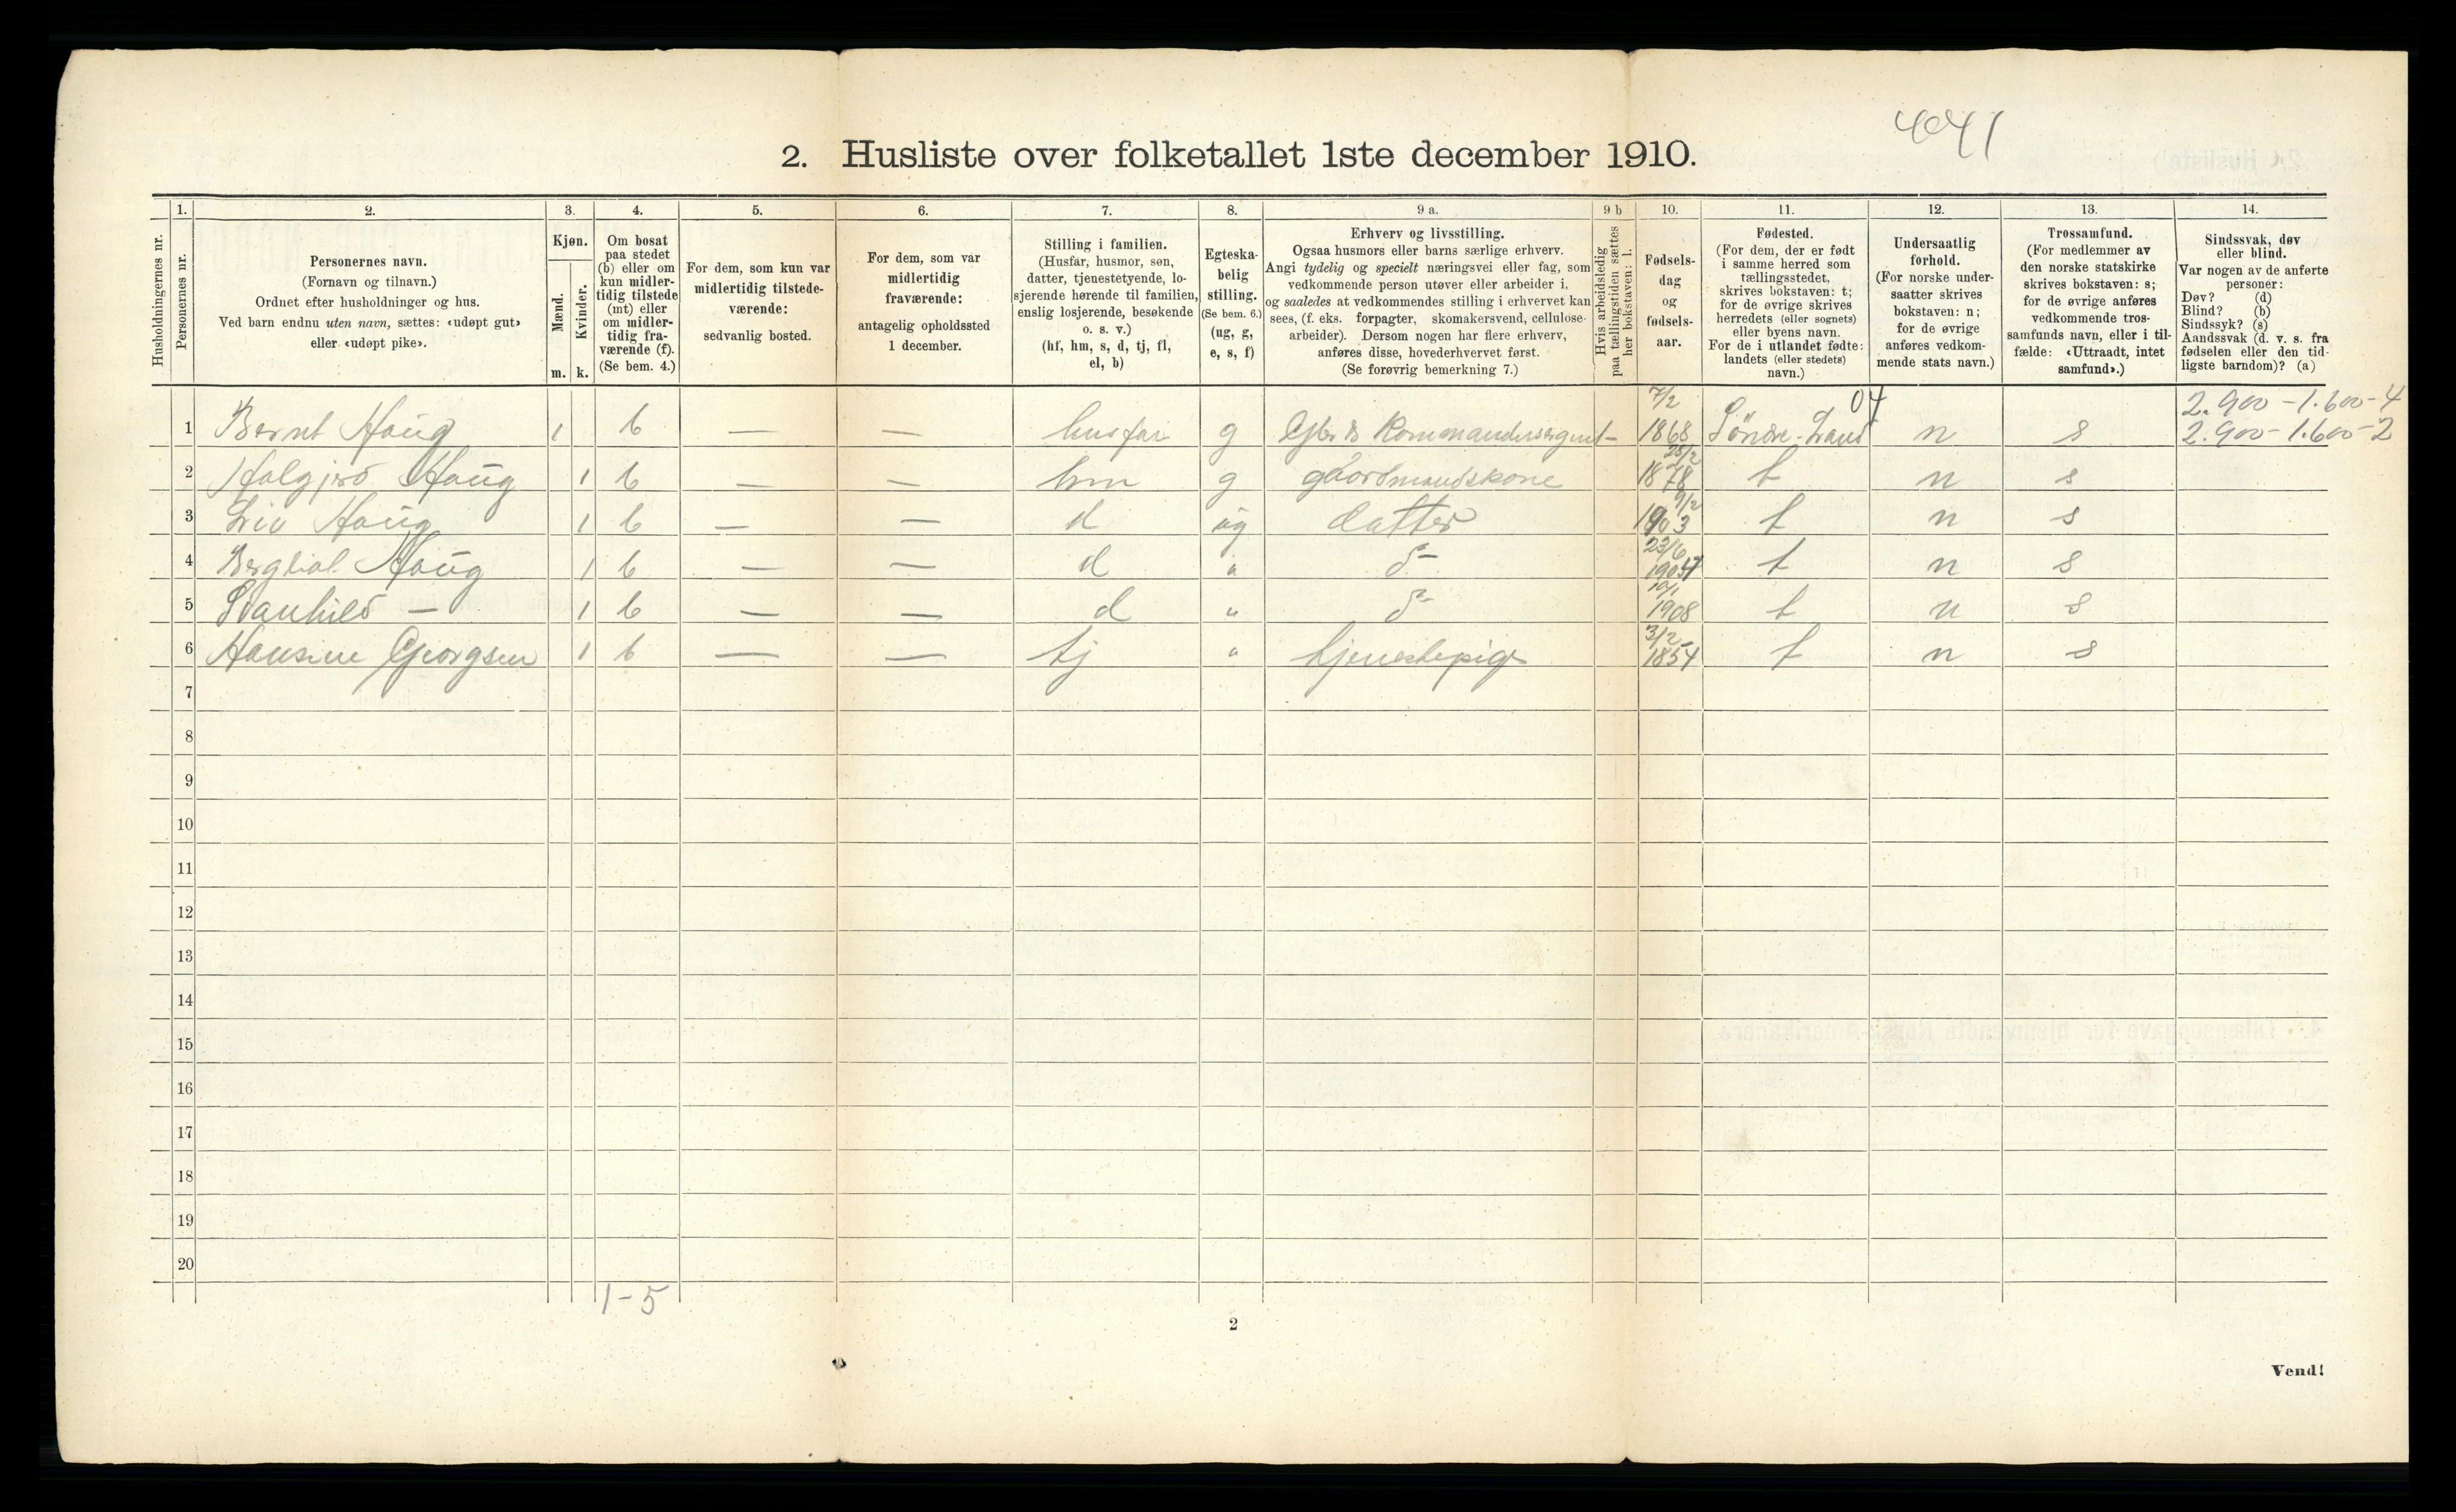 441
2. Husliste over folketallet 1ste december 1910.
Husholdningernes nr.
1.
Personernes nr.
2.
Personernes navn.
(Fornavn og tilnavn.)
Ordnet efter husholdninger og hus.
Ved barn endnu uten navn, sættes: «udøpt gut»
eller «udøpt pike».
3.
Kjøn.
Mænd.
Kvinder.
m. k.
4.
Om bosat
paa stedet
(b) eller om
kun midler-
tidig tilstede
(mt) eller
om midler-
tidig fra-
værende (f).
(Se bem. 4.)
5.
For dem, som kun var
midlertidig tilstede-
værende:
sedvanlig bosted.
6.
For dem, som var
midlertidig
fraværende:
antagelig opholdssted
1 december.
7.
Stilling i familien.
(Husfar, husmor, søn,
datter, tjenestetyende, lo-
sjerende hørende til familien,
enslig losjerende, besøkende
o. s. v.)
(hf, hm, s, d, tj, fl,
el, b)
8.
Egteska-
belig
stilling.
(Se bem. 6.)
(ug, g,
e, s, f)
9 a.
Erhverv og livsstilling.
Ogsaa husmors eller barns særlige erhverv.
Angi tydelig og specielt næringsvei eller fag, som
vedkommende person utøver eller arbeider i,
og saaledes at vedkommendes stilling i erhvervet kan
sees, (f. eks. forpagter, skomakersvend, cellulose-
arbeider). Dersom nogen har flere erhverv,
anføres disse, hovederhvervet først.
(Se forøvrig bemerkning 7.)
9 b
Hvis arbeidsledig
paa tællingstiden sættes
her bokstaven: l.
10.
Fødsels-
dag
og
fødsels-
aar.
11.
Fødested.
(For dem, der er født
i samme herred som
tællingsstedet,
skrives bokstaven: t;
for de øvrige skrives
herredets (eller sognets)
eller byens navn.
For de i utlandet fødte:
landets (eller stedets)
navn.)
12.
Undersaatlig
forhold.
(For norske under-
saatter skrives
bokstaven: n;
for de øvrige
anføres vedkom-
mende stats navn.)
13.
Trossamfund.
(For medlemmer av
den norske statskirke
skrives bokstaven: s;
for de øvrige anføres
vedkommende tros-
samfunds navn, eller i til-
fælde: «Uttraadt, intet
samfund».)
14.
Sindssvak, døv
eller blind.
Var nogen av de anførte
personer:
Døv? (d)
Blind? (b)
Sindssyk? (s)
Aandssvak (d. v. s. fra
fødselen eller den tid-
ligste barndom)? (a)
04 2.900 - 1.600 - 4
1 Bernt Haug 1 b — — husfar g 7/2 1868 Søndre-Land n s 2.900 - 1.600 - 2
2 Halgjerd Haug 1 b — — hm g gaardmandskone 1878 t n s
3 Liv Haug 1 b — — d ug datter 9/2 1903 t n s
4 Bergliot Haug 1 b — — d " do 23/6 t n s
5 Svanhild — 1 b — — d " do 10/1 1908 t n s
6 Hansine Georgsen 1 b — — tj " tjenestepige 3/2 1854 t n s
7
8
9
10
11
12
13
14
15
16
17
18
19
20
1-5
2
Vend!